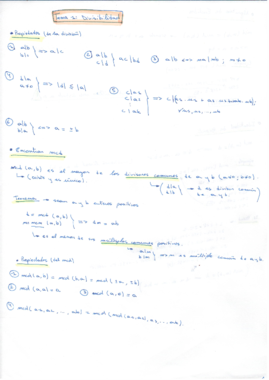 Tema 2: Divisibilidad
• Propiedades (de la división)
① a|b
b|c } => a|c
② a|b
c|d } ac|bd
③ a|b <=> ma|mb ; m≠0
④ b|a
a≠0 } => |b| ≤ |a|
⑤ c|a1
c|a2
c|an
⑥ a|b
b|a } <=> a = ±b
• Encontrar mcd
mcd (a,b) es el mayor de los divisores comunes de a y b (a≠0, b≠0).
(existe y es único).
d|a
d|b } => d es divisor común de a y b.
Teorema → sean a y b enteros positivos
d = mcd (a,b)
m = mcm (a,b) } => dm = ab
es el menor de los múltiplos comunes positivos.
a|m
b|m } <=> m es múltiplo común de a y b
• Propiedades (del mcd)
① mcd(a,b) = mcd (b,a) = mcd (±a, ±b)
② mcd (a,0) = a
③ mcd (a,a) = a
④ mcd (a1, a2, ..., an) = mcd (mcd (a1,a2), a3, ..., an).